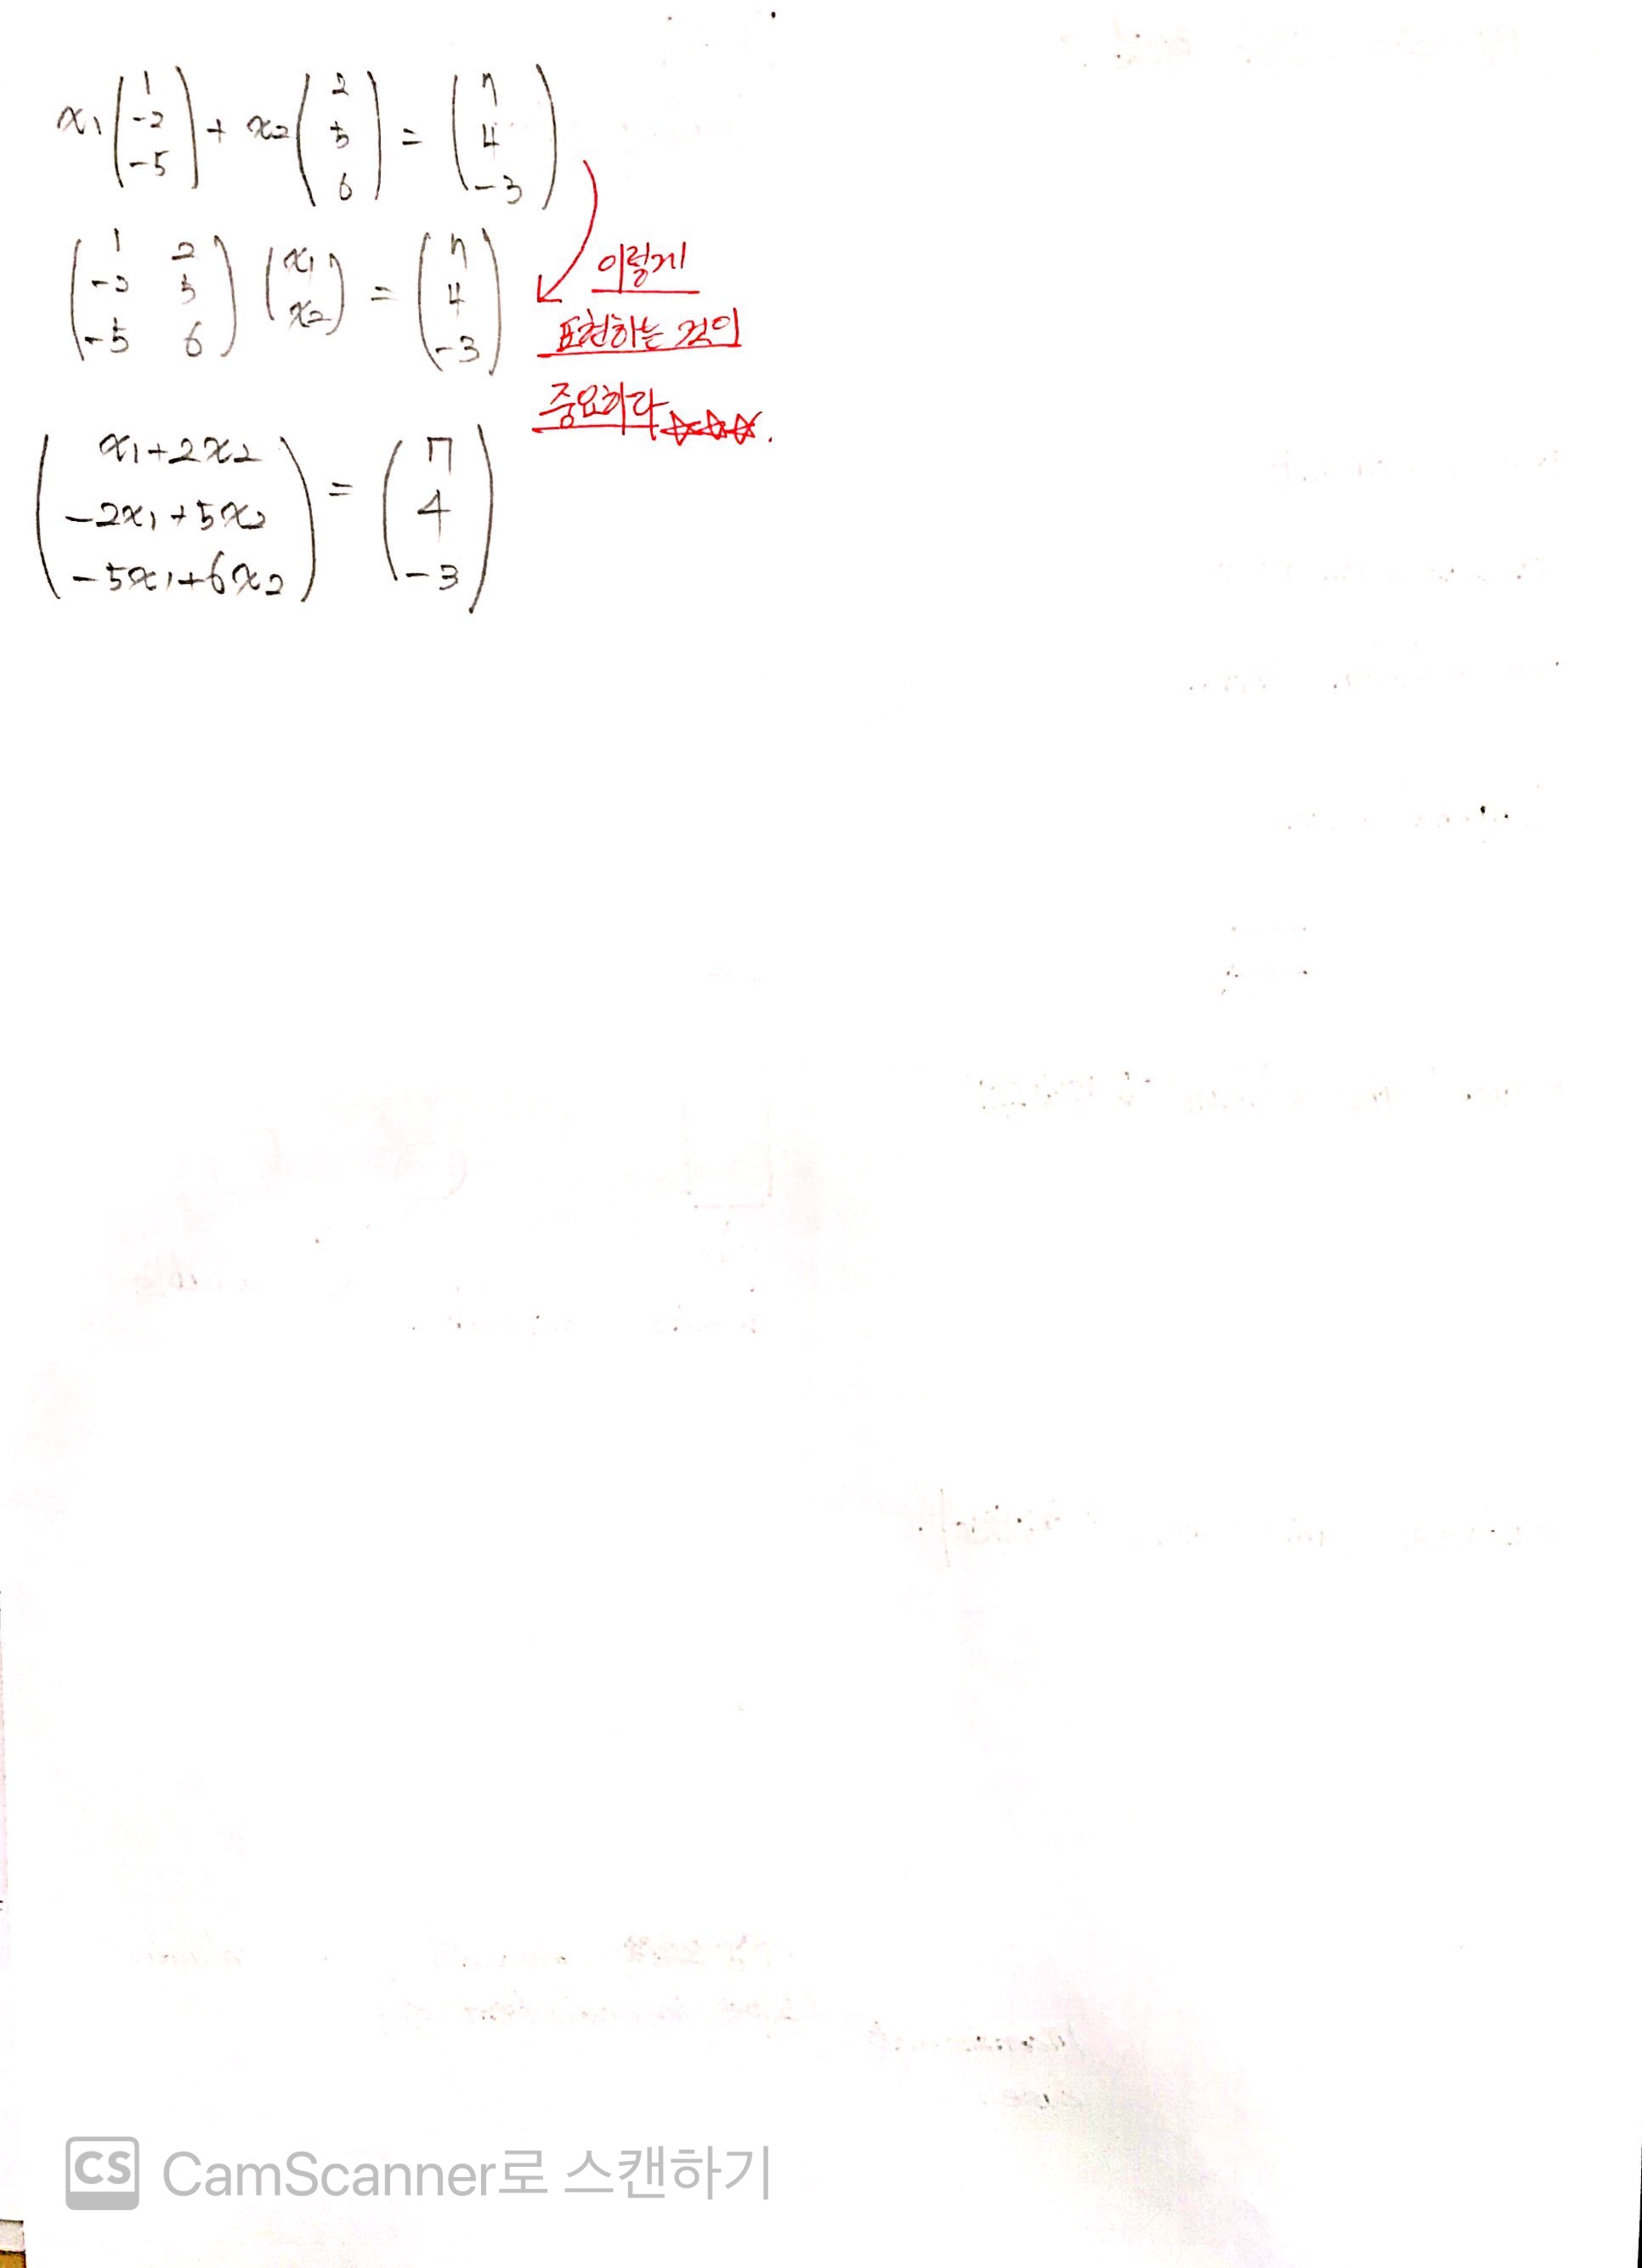 x₁ ( 1 -2 -5 ) + x₂ ( 2 5 6 ) = ( 7 4 -3 )
( 1 2 -2 5 -5 6 ) ( x₁ x₂ ) = ( 7 4 -3 )
이렇게
표현하는 것이
중요하라 ☆☆☆.
( x₁+2x₂ -2x₁+5x₂ -5x₁+6x₂ ) = ( 7 4 -3 )
CS CamScanner로 스캔하기